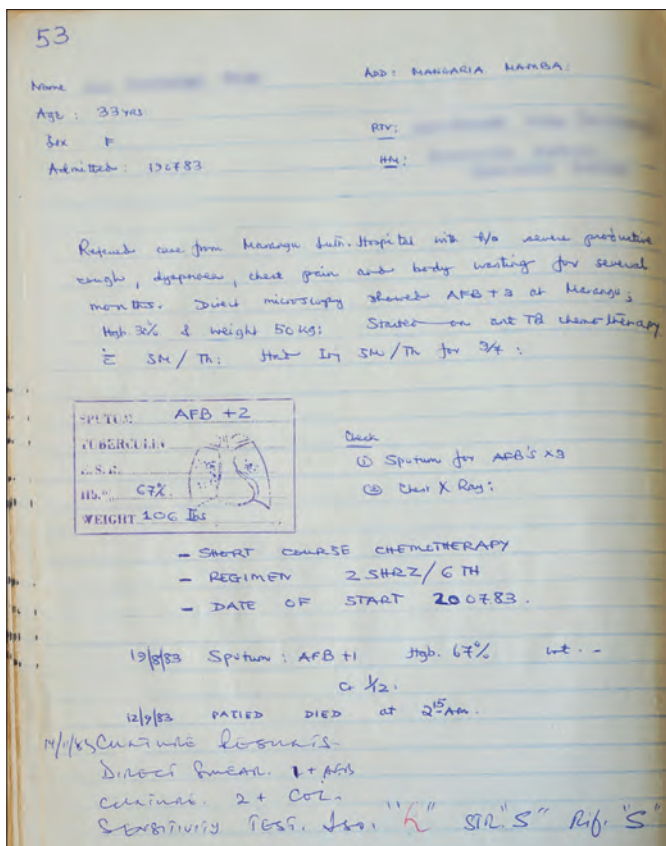 53
ADD: MANGARIA MAMBA.
Name
Age : 33 yrs
Sex F
RTV:
HN:
Admitted : 190783
Referred case from Marangu Luth. Hospital with h/o severe productive
cough, dyspnoea, chest pain and body wasting for several
months. Direct microscopy showed AFB +3 at Marangu;
Hgb & weight 50 kg: Started on ant TB chemotherapy
c̄ SM / Th: Had Inj SM/Th for 3/4 :
SPUTUM AFB +2
TUBERCULIN
E.S.R.
Hb.% 67%
WEIGHT 106 lbs
Check
① Sputum for AFB's x3
② Chest X Ray:
- SHORT COURSE CHEMOTHERAPY
- REGIMEN 2 SHRZ / 6 TH
- DATE OF START 200783.
19/8/83 Sputum : AFB +1 Hgb. 67% wt. -
1/2.
12/9/83 PATIED DIED at 2 15 Am.
14/11/83 CULTURE RESULTS.
DIRECT SMEAR. 1+ AFB
CULTURE. 2 + COL.
SENSITIVITY TEST. Iso. STR. "S" Rif. "S"